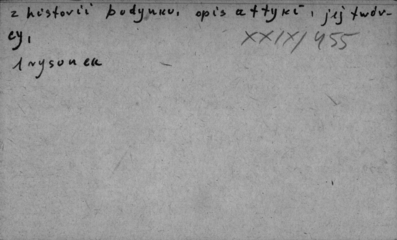 z historii budynku, opis attyki, jej twór-
cy,
XXIX/455
1 rysunek